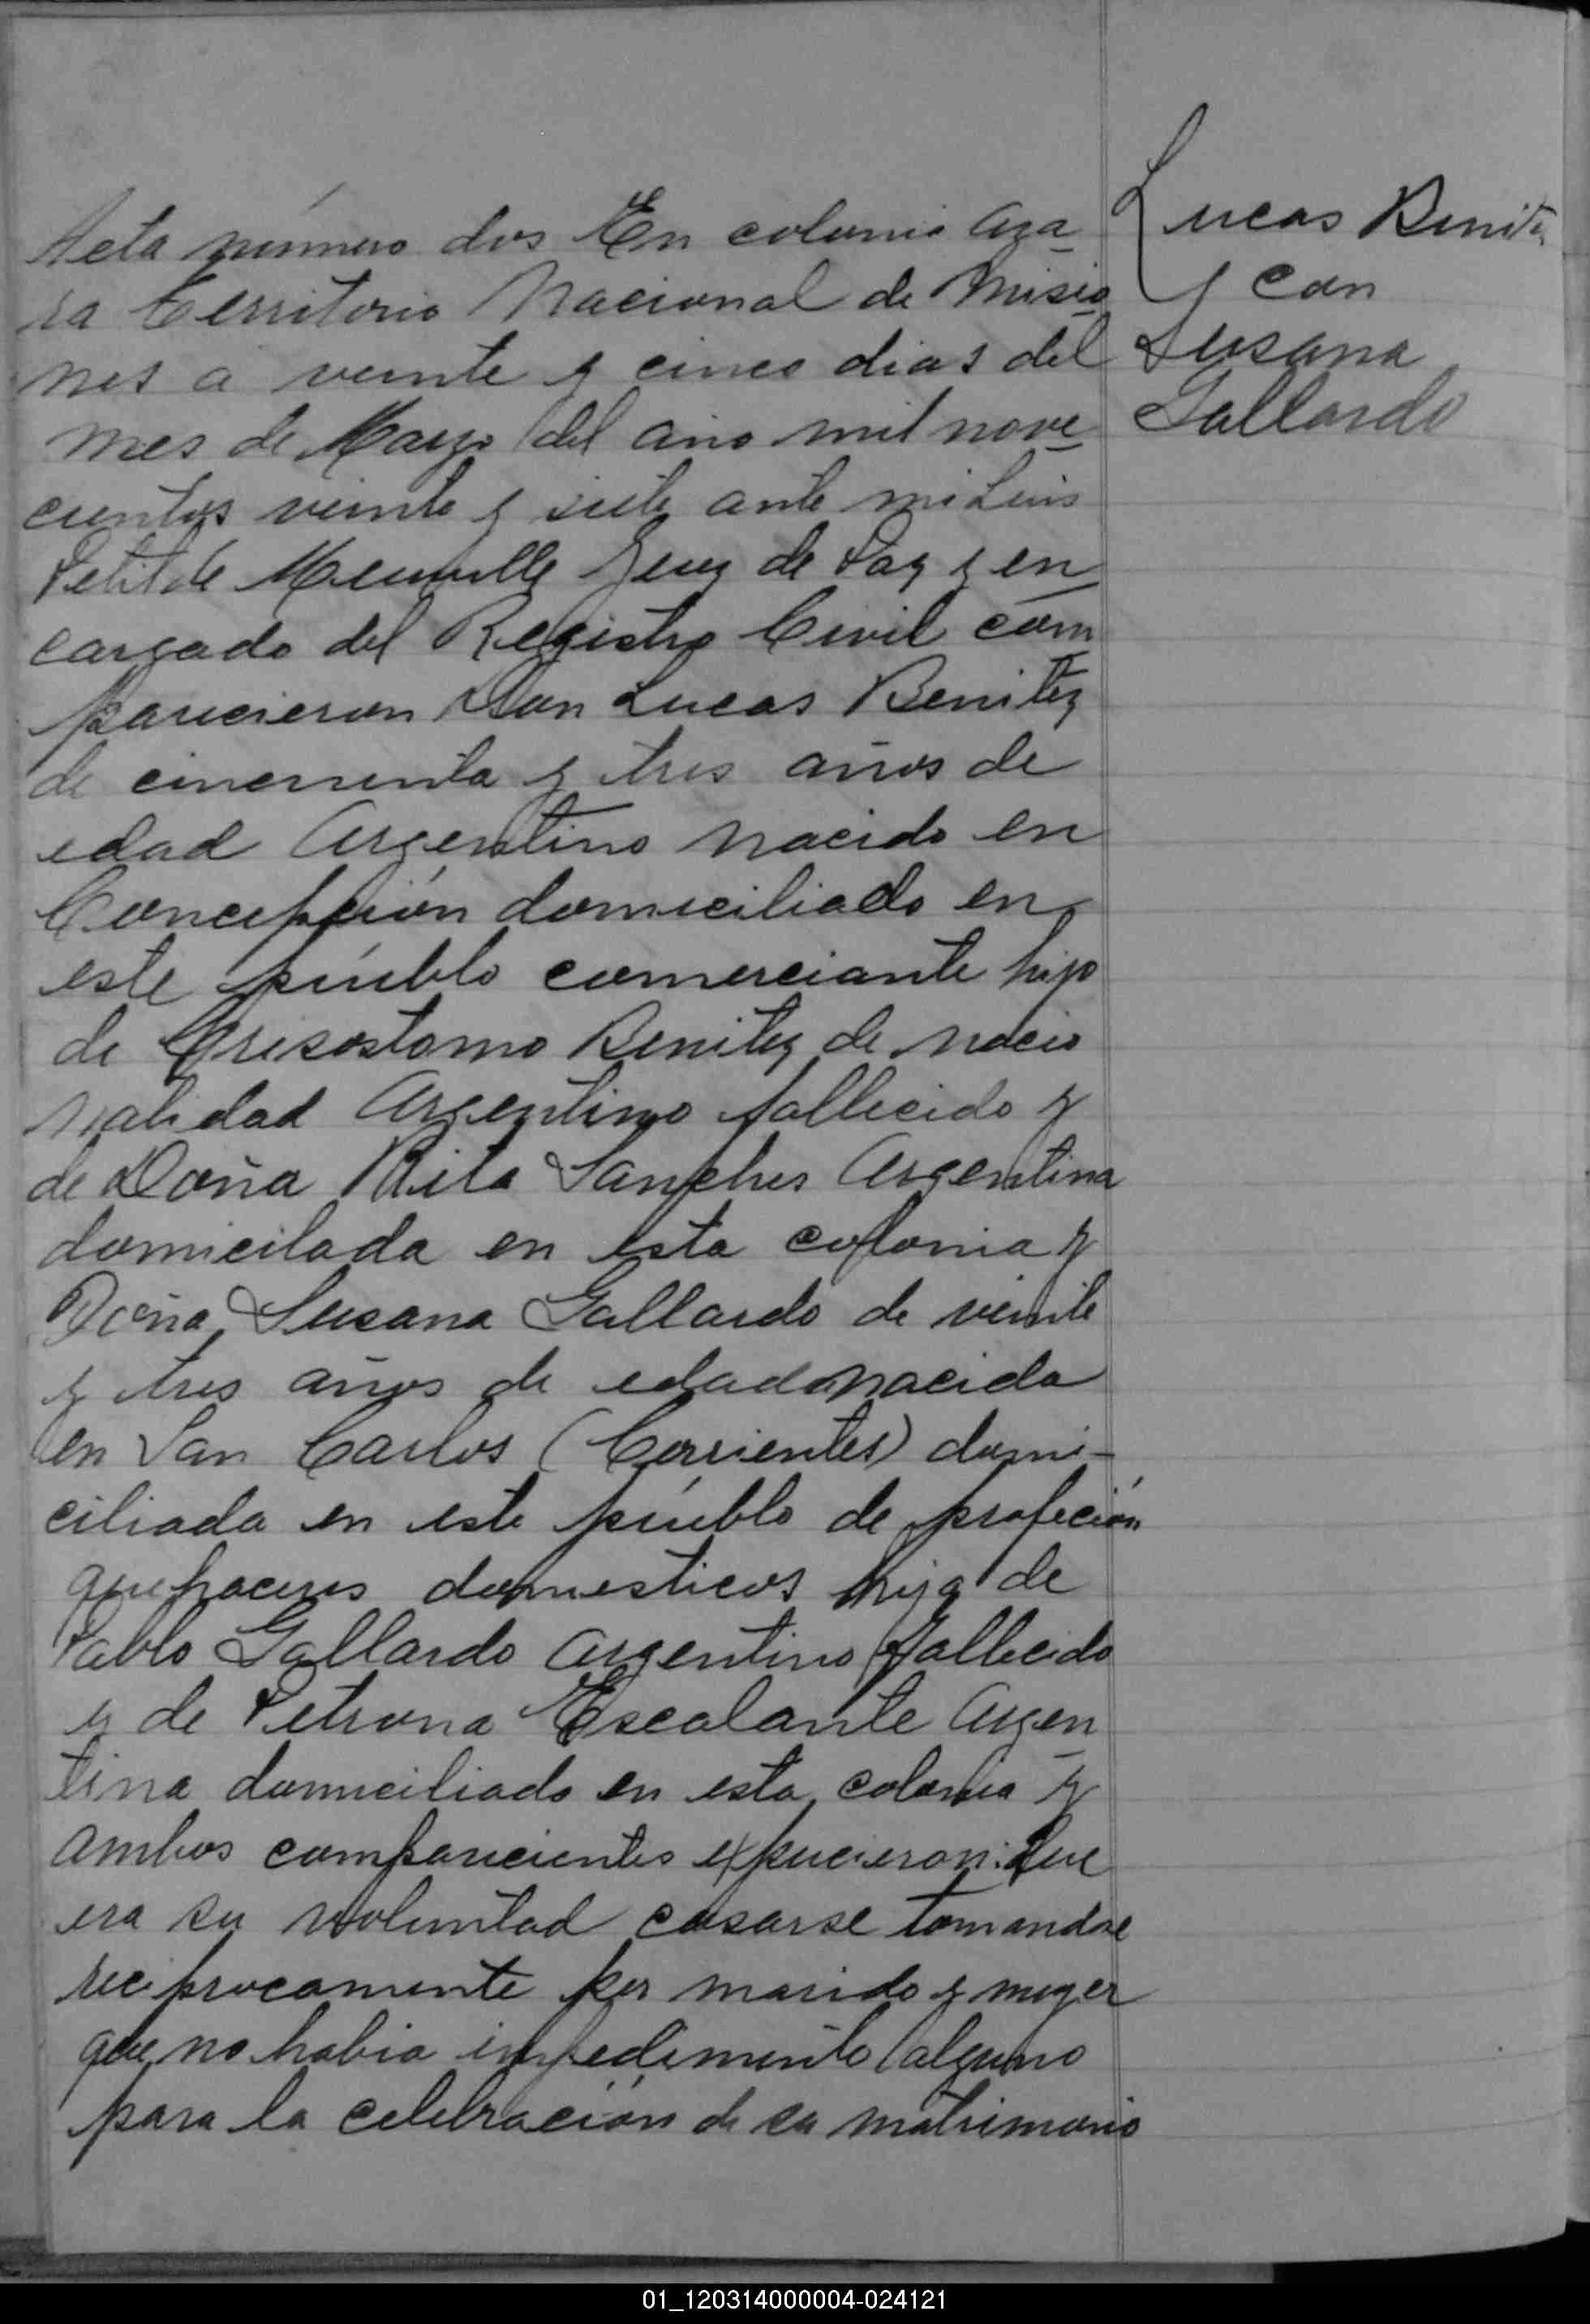 Acta número dos En colonia Aza
ra Territorio Nacional de Misio
nes a veinte y cinco dias del
mes de Marzo del año mil nove
cientos veinte y siete ante mi Luis
Petit de Meurville Juez de Paz y en
cargado del Registro Civil com
parecieron Don Lucas Benitez
de cincuenta y tres años de
edad Argentino nacido en
Concepción domiciliado en
este pueblo comerciante hijo
de Crisostomo Benitez de nacio
nalidad Argentino fallecido y
de Doña Rita Sanches Argentina
domicilada en esta colonia y
Doña Susana Gallardo de veinte
y tres años de edad nacida
en San Carlos (Corrientes) domi-
ciliada en este pueblo de profeción
quehaceres domesticos hija de
Pablo Gallardo Argentino fallecido
y de Petrona Escalante Argen
tina domiciliado en esta colonia y
ambos comparecientes expucieron: Que
era su voluntad casarse tomandose
reciprocamente por marido y muger
que no habia impedimento alguno
para la celebración de su matrimonio
Lucas Benitez
con
Susana
Gallardo
01_120314000004-024121